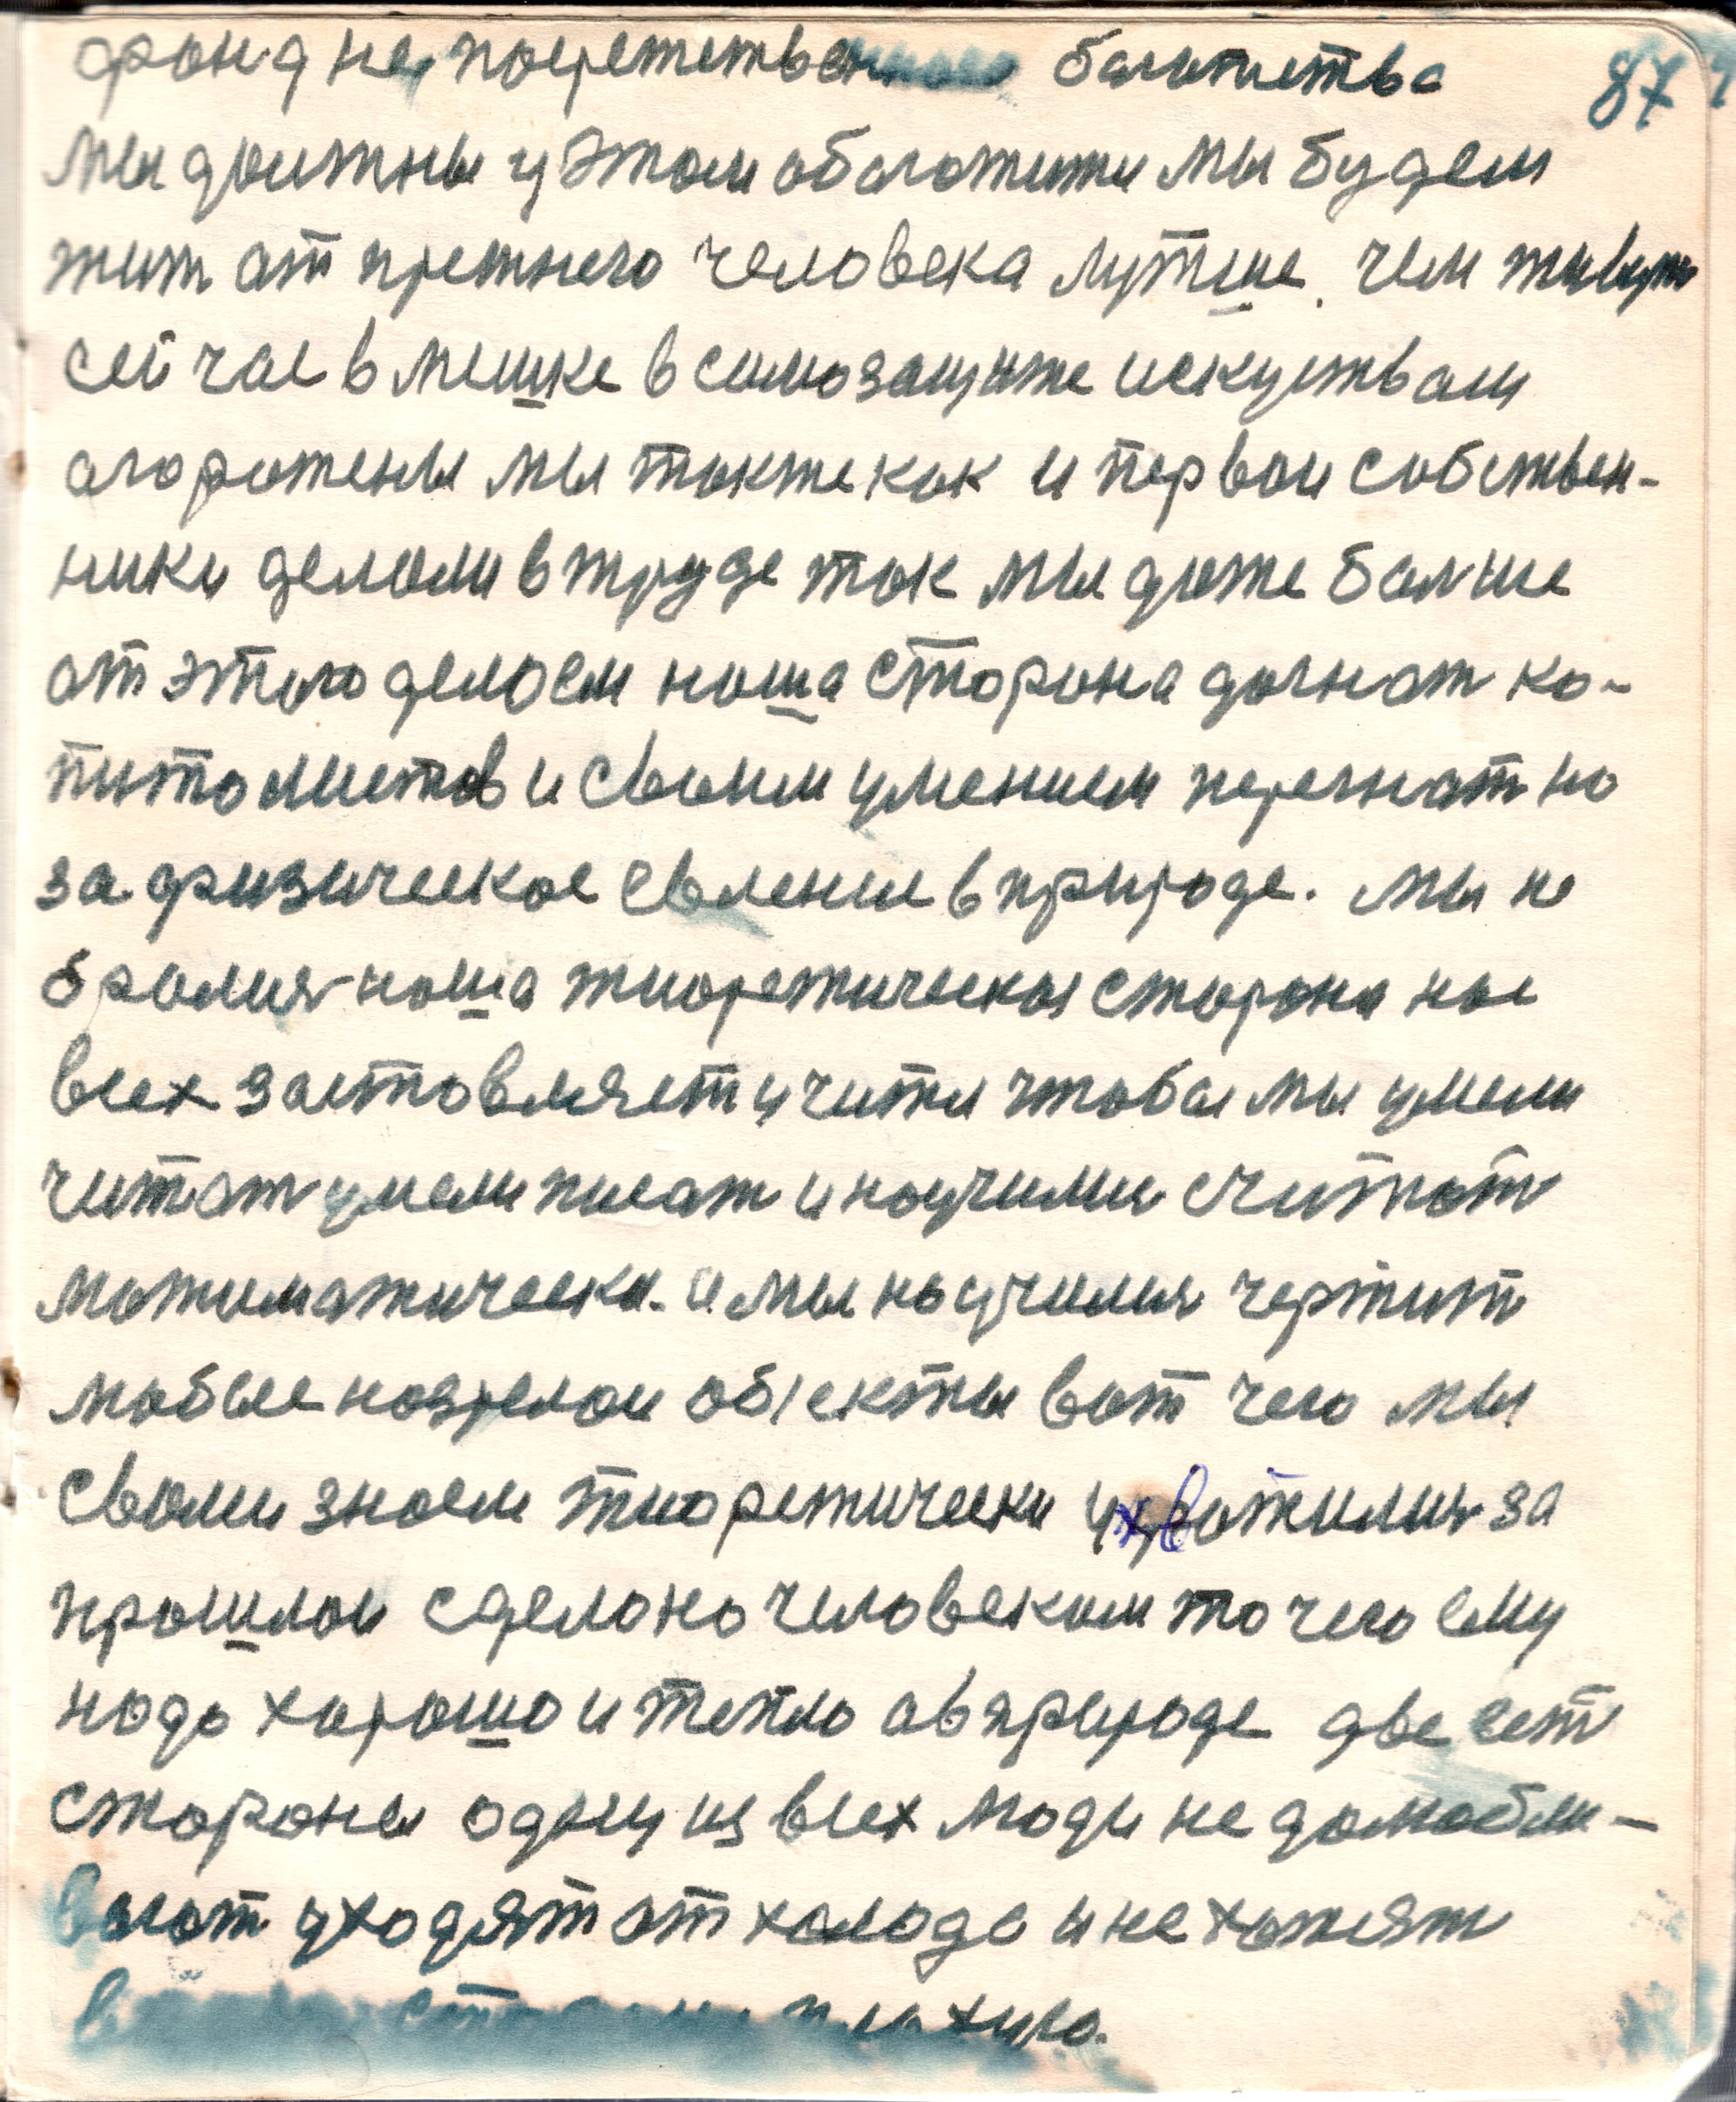 фонд не посретственного багатства 87
мы должны у этом обагатити мы будем
жит от прежнего человека лутше. чем живут
сейчас в мешке в самозащите искуствам
агорожены мы также как и первои собствен-
ники делали в труде так мы даже болше
от этого делаем наша сторона дагнат ка-
питалистов и своим умением перегнат но
за физическое евление в природе. мы не
бралися наша тиоретическая сторона нас
всех заставляет учити чтобы мы умели
читат умели писат и научилис считат
матиматически. и мы научилися чертит
любые назрелои обiекты вот чего мы
своли знаем тиоретически ухватилися за
прошлои сделано человеком то чего ему
надо харошо и тепло а в природе две ест
стороны одну из всех люди не далюбли-
вают уходят от холода и не хотят
плохиго.